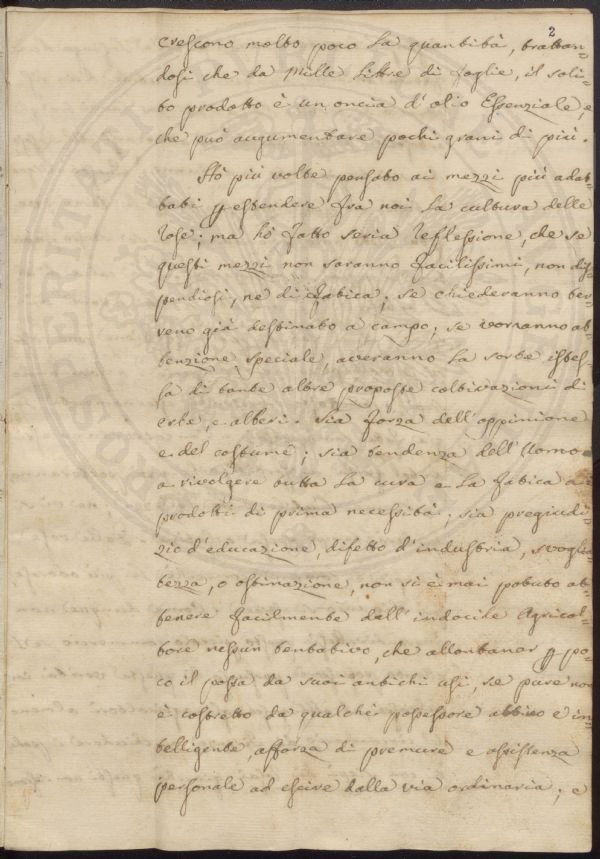 2
crescono molto poco la quantità, trattan=
dosi che da Mille libre di foglie, il soli=
to prodotto è un oncia d'olio Essenziale, e
che può augumentare pochi grani di più.
Hò più volte pensato ai mezzi più adat=
tati p estendere fra noi la cultura delle
rose; ma hò fatto seria reflessione, che se
questi mezzi non saranno facilissimi, non dis=
pendiosi, ne di fatica; se chiederanno ter=
reno già destinato a campo; se vorranno at=
tenzione speciale, averanno la sorte istes=
sa di tante altre proposte coltivazioni di
erbe, e alberi. Sia forza dell'oppinione
e del costume; sia tendenza dell'Uomo
a rivolgere tutta la cura e la fatica a
prodotti di prima necessità; sia pregiudi=
zio d'educazione, difetto d'industria, svoglia
tezza, o ostinazione, non si è mai potuto ot=
tenere facilmente dall'indocile Agricol=
tore nessun tentativo, che allontanar p po=
co il possa da suoi antichi usi, se pure non
è costretto da qualche possessore attivo e in=
telligente, afforza di premure e assistenza
personale ad escire dalla via ordinaria; e